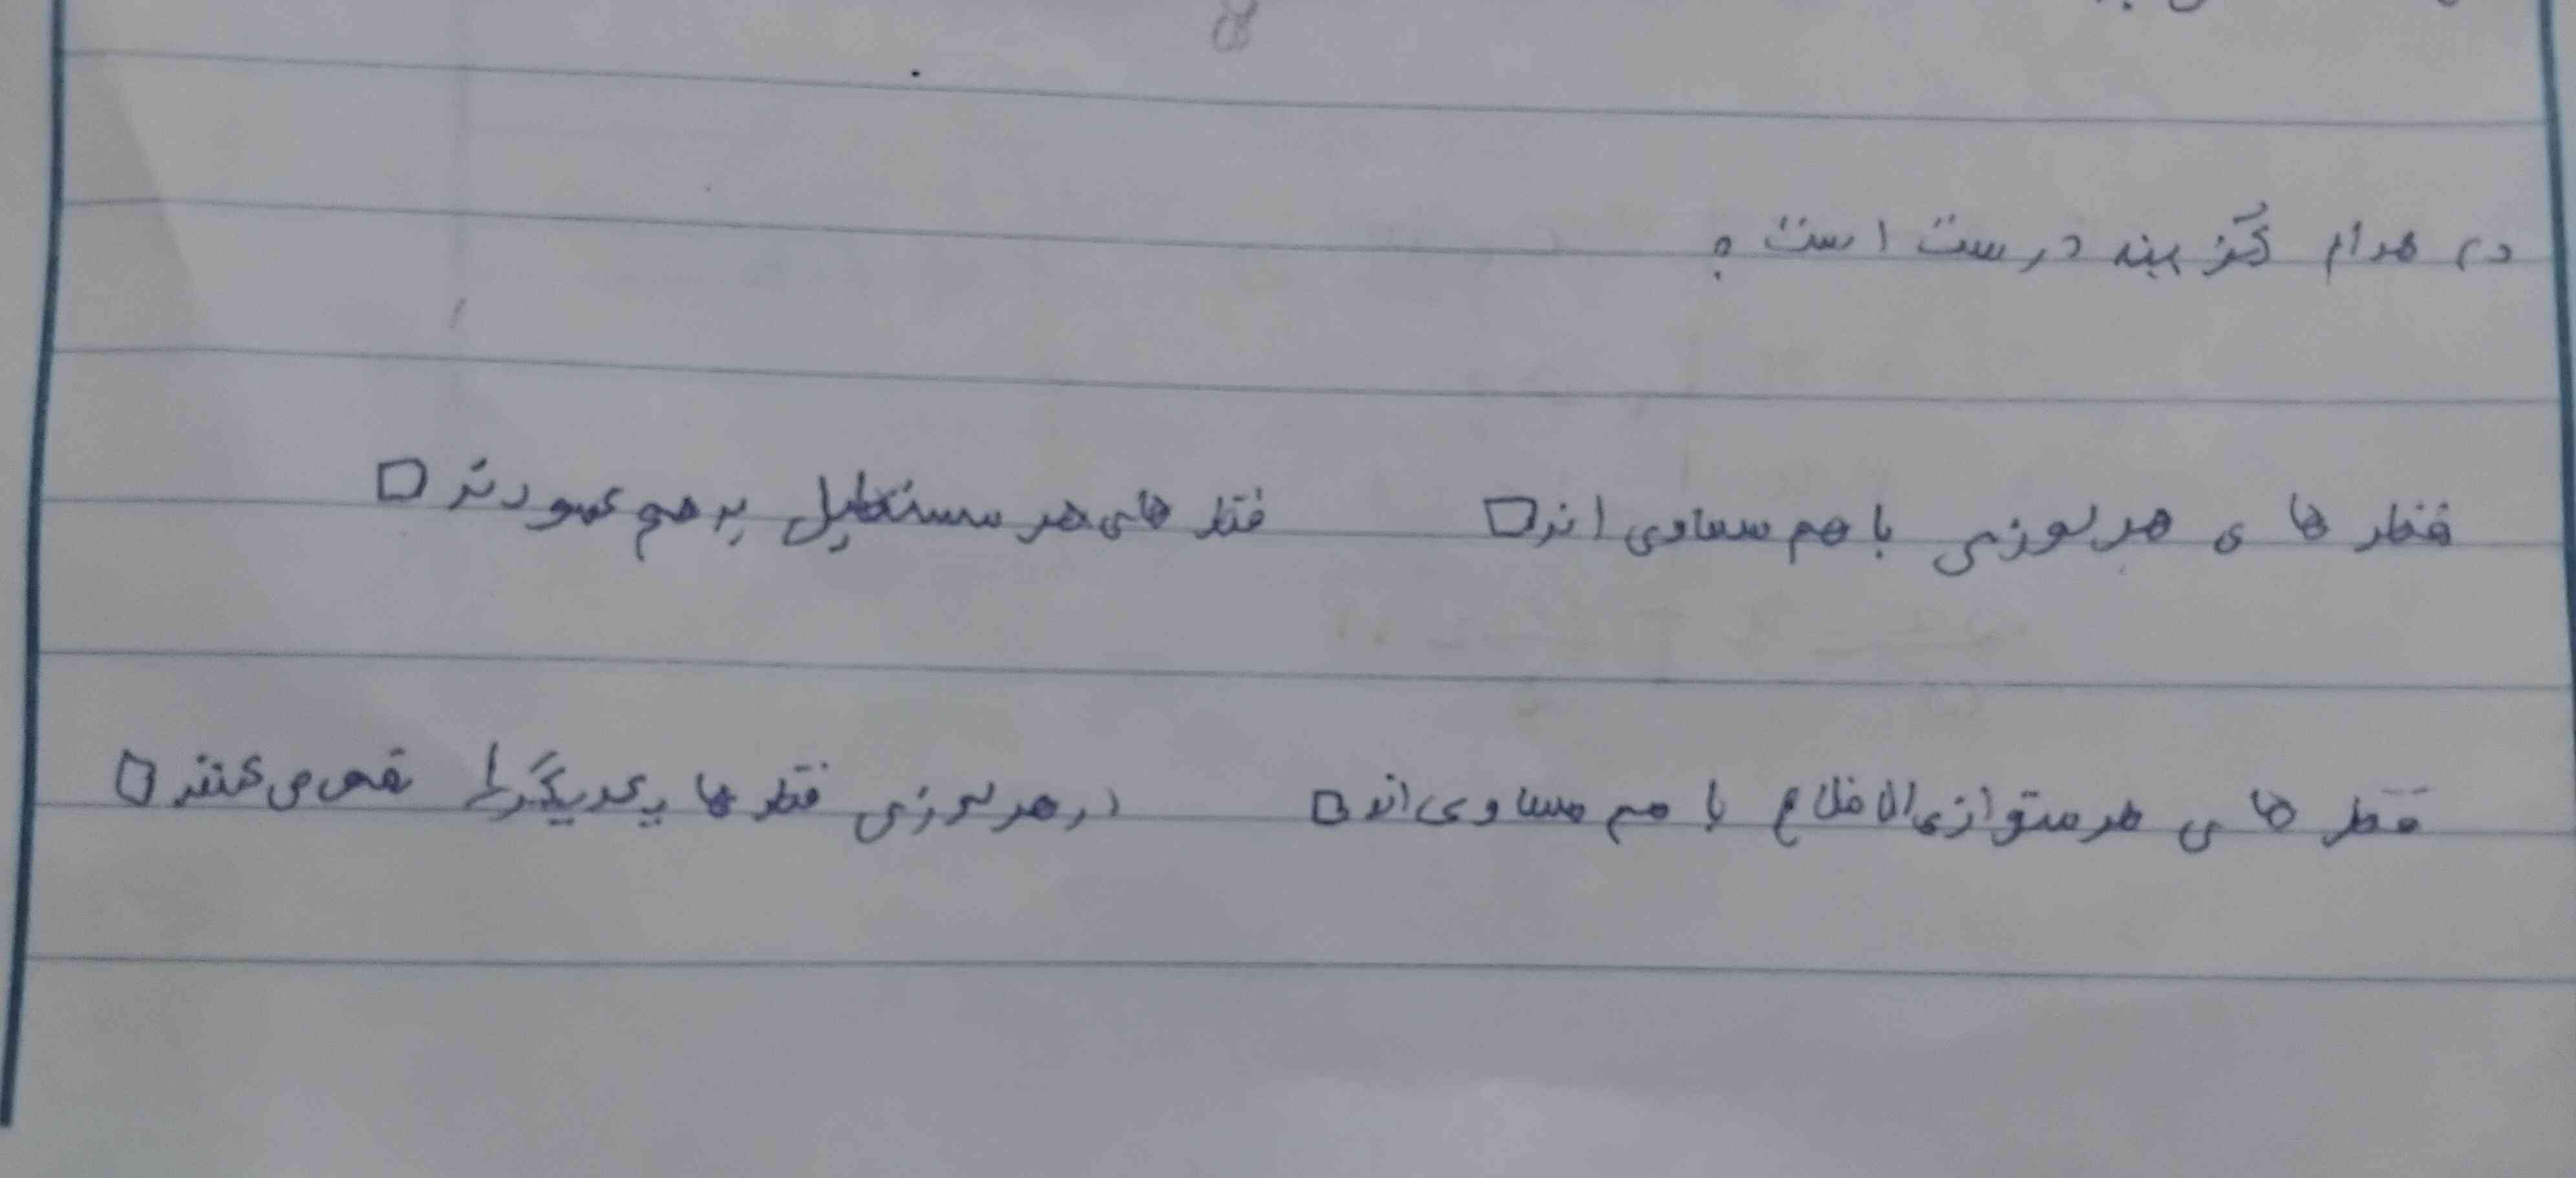 د) کدام گزینه درست است ؟
قطر های هر لوزی با هم مساوی اند □ قطر های هر مستطیل بر هم عمودند □
قطر های هر متوازی الاضلاع با هم مساوی اند □ در هر لوزی قطر ها یکدیگر را نصف می کنند □